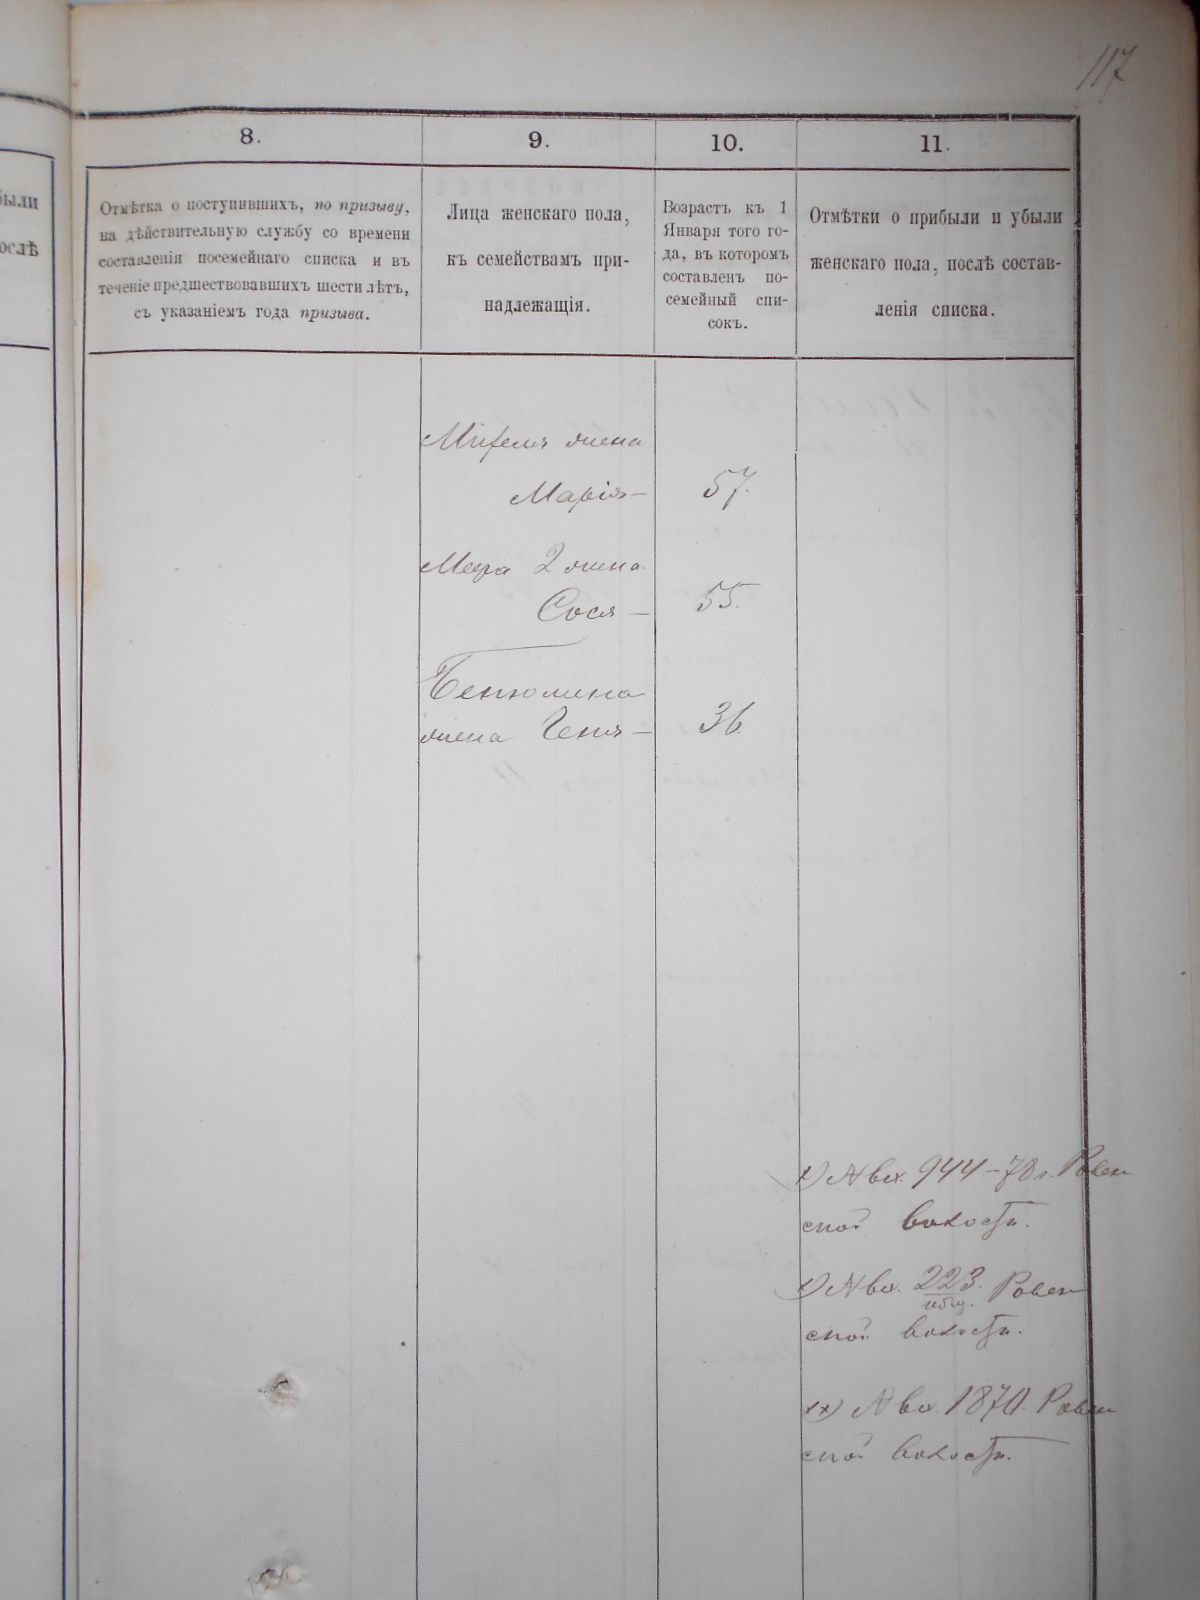 117
были
ослѣ
8.
9.
10.
11.
Отмѣтка о поступившихъ, по призыву,
на дѣйствительную службу со времени
составленія посемейнаго списка и въ
теченіе предшествовавшихъ шести лѣтъ,
съ указаніемъ года призыва.
Лица женскаго пола,
къ семействамъ при-
надлежащія.
Возрастъ къ 1
Января того го-
да, въ которомъ
составленъ по-
семейный спи-
сокъ.
Отмѣтки о прибыли и убыли
женскаго пола, послѣ состав-
ленія списка.
жена
Марія – 57.
2 жена
Сося – 55.
жена Геня – 36.
х) № вх. 944–78 г. Ровен
ской волости.
х) № вх. 223. Ровен
ской волости.
хх) № вх. 1870. Ровен
ской волости.